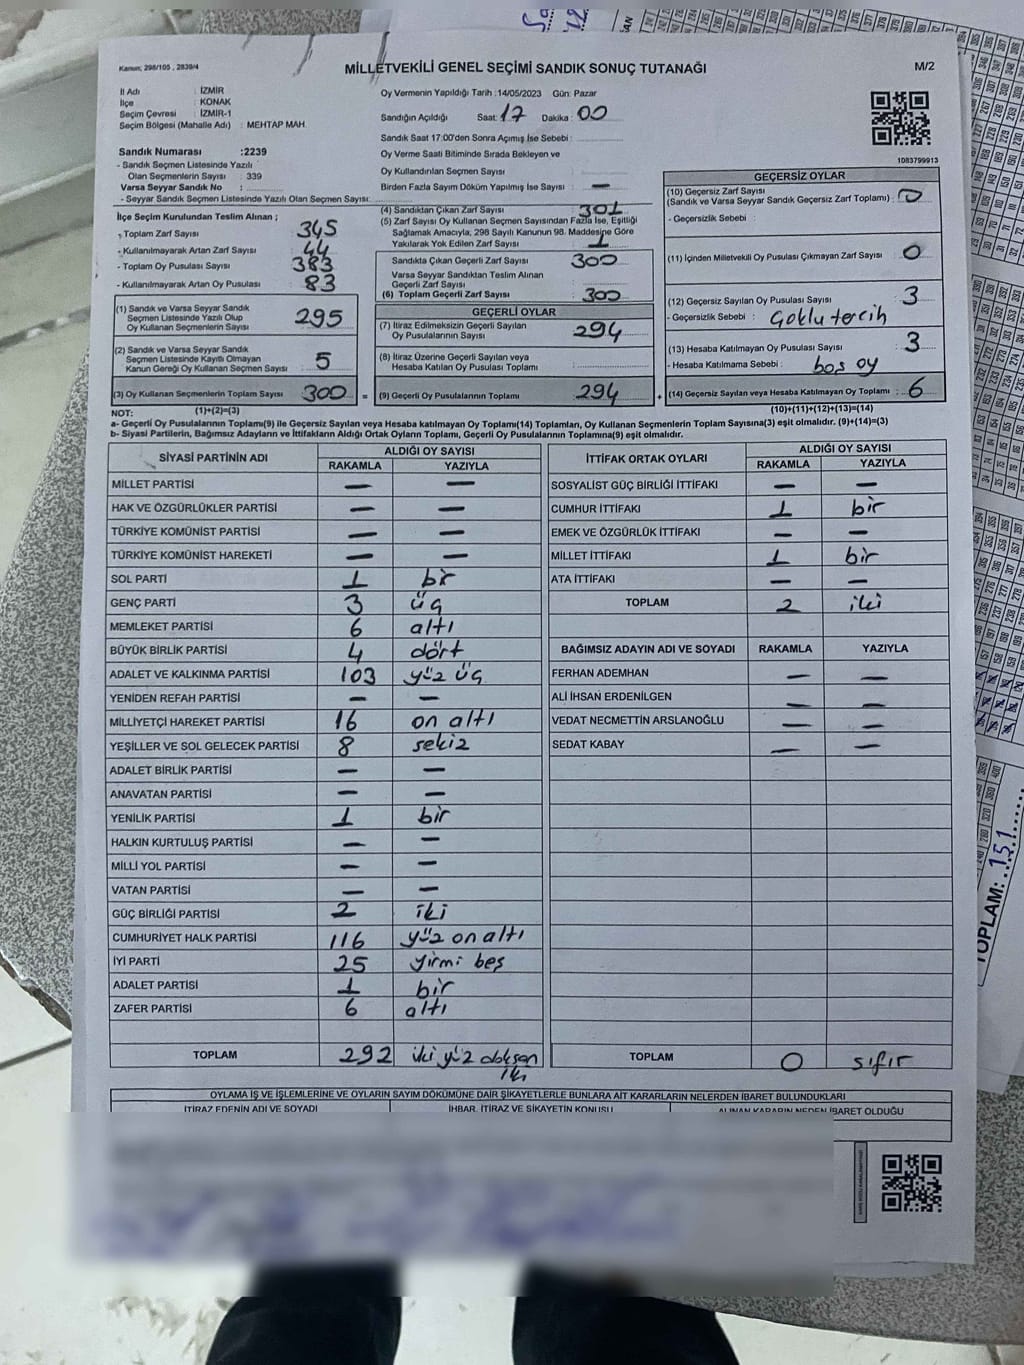 Kanun; 298/105 , 2839/4
MİLLETVEKİLİ GENEL SEÇİMİ SANDIK SONUÇ TUTANAĞI
M/2
İl Adı : İZMİR
İlçe : KONAK
Seçim Çevresi : İZMİR-1
Seçim Bölgesi (Mahalle Adı) : MEHTAP MAH.
Oy Vermenin Yapıldığı Tarih :14/05/2023 Gün: Pazar
Sandığın Açıldığı Saat: 17 Dakika : 00
Sandık Saat 17:00'den Sonra Açımış İse Sebebi :
Oy Verme Saati Bitiminde Sırada Bekleyen ve
Oy Kullandırılan Seçmen Sayısı :
Birden Fazla Sayım Döküm Yapılmış İse Sayısı : —
1083799913
Sandık Numarası :2239
- Sandık Seçmen Listesinde Yazılı
Olan Seçmenlerin Sayısı : 339
Varsa Seyyar Sandık No :
- Seyyar Sandık Seçmen Listesinde Yazılı Olan Seçmen Sayısı:
İlçe Seçim Kurulundan Teslim Alınan ;
- Toplam Zarf Sayısı : 345
- Kullanılmayarak Artan Zarf Sayısı : 44
- Toplam Oy Pusulası Sayısı : 383
- Kullanılmayarak Artan Oy Pusulası : 83
(1) Sandık ve Varsa Seyyar Sandık
Seçmen Listesinde Yazılı Olup
Oy Kullanan Seçmenlerin Sayısı : 295
(2) Sandık ve Varsa Seyyar Sandık
Seçmen Listesinde Kayıtlı Olmayan
Kanun Gereği Oy Kullanan Seçmen Sayısı : 5
(3) Oy Kullanan Seçmenlerin Toplam Sayısı : 300 =
(1)+(2)=(3)
(4) Sandıktan Çıkan Zarf Sayısı : 301
(5) Zarf Sayısı Oy Kullanan Seçmen Sayısından Fazla İse, Eşitliği
Sağlamak Amacıyla, 298 Sayılı Kanunun 98. Maddesine Göre
Yakılarak Yok Edilen Zarf Sayısı : 1
Sandıkta Çıkan Geçerli Zarf Sayısı : 300
Varsa Seyyar Sandıktan Teslim Alınan
Geçerli Zarf Sayısı :
(6) Toplam Geçerli Zarf Sayısı : 300
GEÇERLİ OYLAR
(7) İtiraz Edilmeksizin Geçerli Sayılan
Oy Pusulalarının Sayısı : 294
(8) İtiraz Üzerine Geçerli Sayılan veya
Hesaba Katılan Oy Pusulası Toplamı :
(9) Geçerli Oy Pusulalarının Toplamı : 294 +
GEÇERSİZ OYLAR
(10) Geçersiz Zarf Sayısı
(Sandık ve Varsa Seyyar Sandık Geçersiz Zarf Toplamı) : 0
- Geçersizlik Sebebi :
(11) İçinden Milletvekili Oy Pusulası Çıkmayan Zarf Sayısı : 0
(12) Geçersiz Sayılan Oy Pusulası Sayısı : 3
- Geçersizlik Sebebi : Çoklu tercih
(13) Hesaba Katılmayan Oy Pusulası Sayısı : 3
- Hesaba Katılmama Sebebi : boş oy
(14) Geçersiz Sayılan veya Hesaba Katılmayan Oy Toplamı : 6
(10)+(11)+(12)+(13)=(14)
NOT:
a- Geçerli Oy Pusulalarının Toplamı(9) ile Geçersiz Sayılan veya Hesaba katılmayan Oy Toplamı(14) Toplamları, Oy Kullanan Seçmenlerin Toplam Sayısına(3) eşit olmalıdır. (9)+(14)=(3)
b- Siyasi Partilerin, Bağımsız Adayların ve İttifakların Aldığı Ortak Oyların Toplamı, Geçerli Oy Pusulalarının Toplamına(9) eşit olmalıdır.
SİYASİ PARTİNİN ADI ALDIĞI OY SAYISI
RAKAMLA YAZIYLA
MİLLET PARTİSİ — —
HAK VE ÖZGÜRLÜKLER PARTİSİ — —
TÜRKİYE KOMÜNİST PARTİSİ — —
TÜRKİYE KOMÜNİST HAREKETİ — —
SOL PARTİ 1 bir
GENÇ PARTİ 3 üç
MEMLEKET PARTİSİ 6 altı
BÜYÜK BİRLİK PARTİSİ 4 dört
ADALET VE KALKINMA PARTİSİ 103 yüz üç
YENİDEN REFAH PARTİSİ — —
MİLLİYETÇİ HAREKET PARTİSİ 16 on altı
YEŞİLLER VE SOL GELECEK PARTİSİ 8 sekiz
ADALET BİRLİK PARTİSİ — —
ANAVATAN PARTİSİ — —
YENİLİK PARTİSİ 1 bir
HALKIN KURTULUŞ PARTİSİ — —
MİLLİ YOL PARTİSİ — —
VATAN PARTİSİ — —
GÜÇ BİRLİĞİ PARTİSİ 2 iki
CUMHURİYET HALK PARTİSİ 116 yüz on altı
İYİ PARTİ 25 yirmi beş
ADALET PARTİSİ 1 bir
ZAFER PARTİSİ 6 altı
TOPLAM 292 iki yüz doksan
iki
İTTİFAK ORTAK OYLARI ALDIĞI OY SAYISI
RAKAMLA YAZIYLA
SOSYALİST GÜÇ BİRLİĞİ İTTİFAKI — —
CUMHUR İTTİFAKI 1 bir
EMEK VE ÖZGÜRLÜK İTTİFAKI — —
MİLLET İTTİFAKI 1 bir
ATA İTTİFAKI — —
TOPLAM 2 iki
BAĞIMSIZ ADAYIN ADI VE SOYADI RAKAMLA YAZIYLA
FERHAN ADEMHAN — —
ALİ İHSAN ERDENİLGEN — —
VEDAT NECMETTİN ARSLANOĞLU — —
SEDAT KABAY — —
TOPLAM 0 sıfır
OYLAMA İŞ VE İŞLEMLERİNE VE OYLARIN SAYIM DÖKÜMÜNE DAİR ŞİKAYETLERLE BUNLARA AİT KARARLARIN NELERDEN İBARET BULUNDUKLARI
İTİRAZ EDENİN ADI VE SOYADI İHBAR, İTİRAZ VE ŞİKAYETİN KONUSU ALINAN KARARIN NEDEN İBARET OLDUĞU
TOPLAM: 151